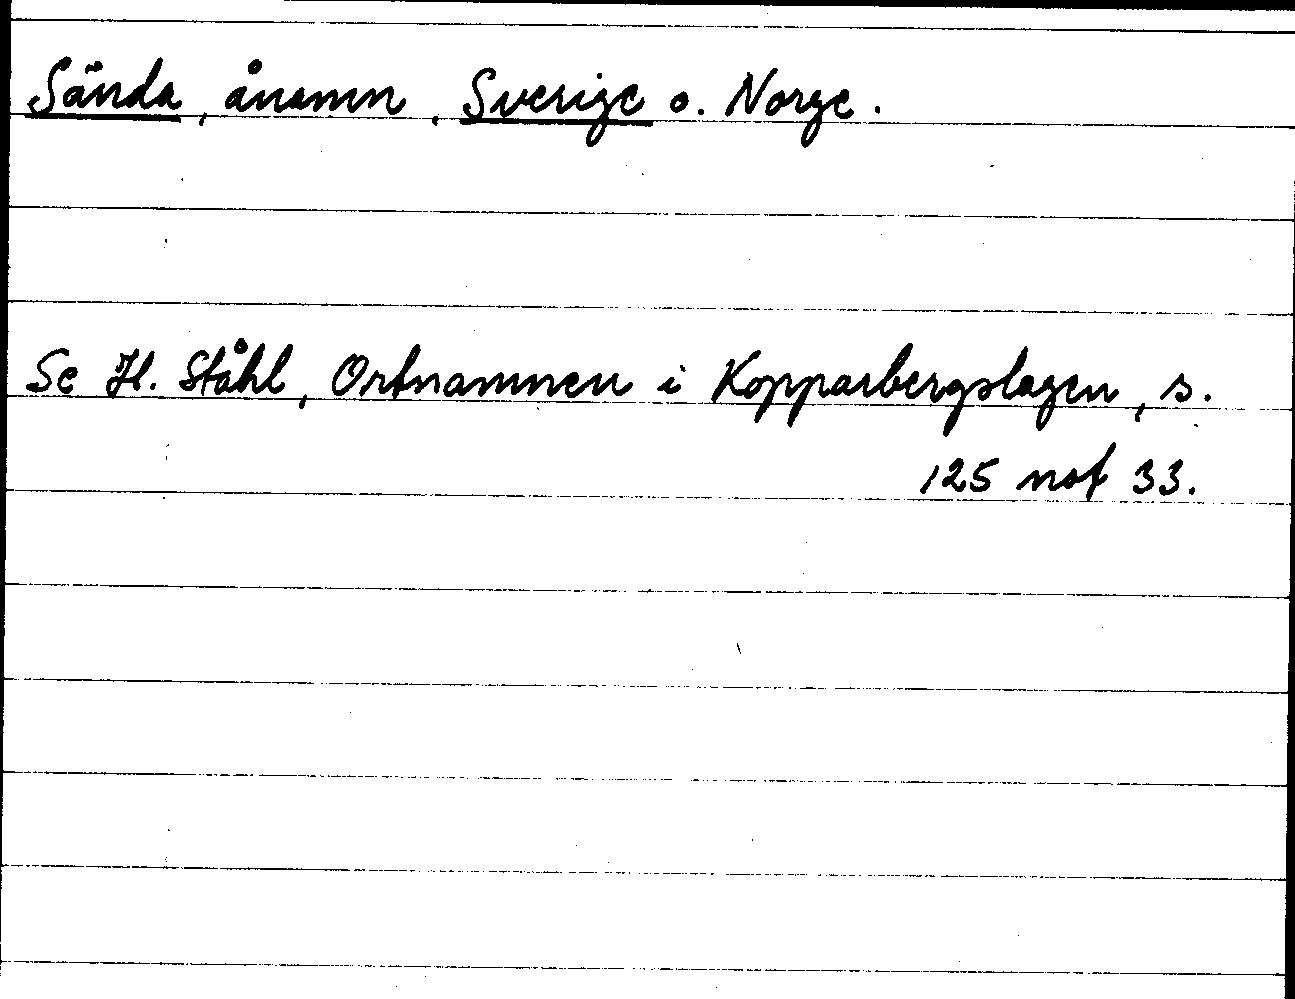 Sända, ånamn, Sverige o. Norge.
Se H. Ståhl, Ortnamnen i Kopparbergslagen, s.
125 not 33.